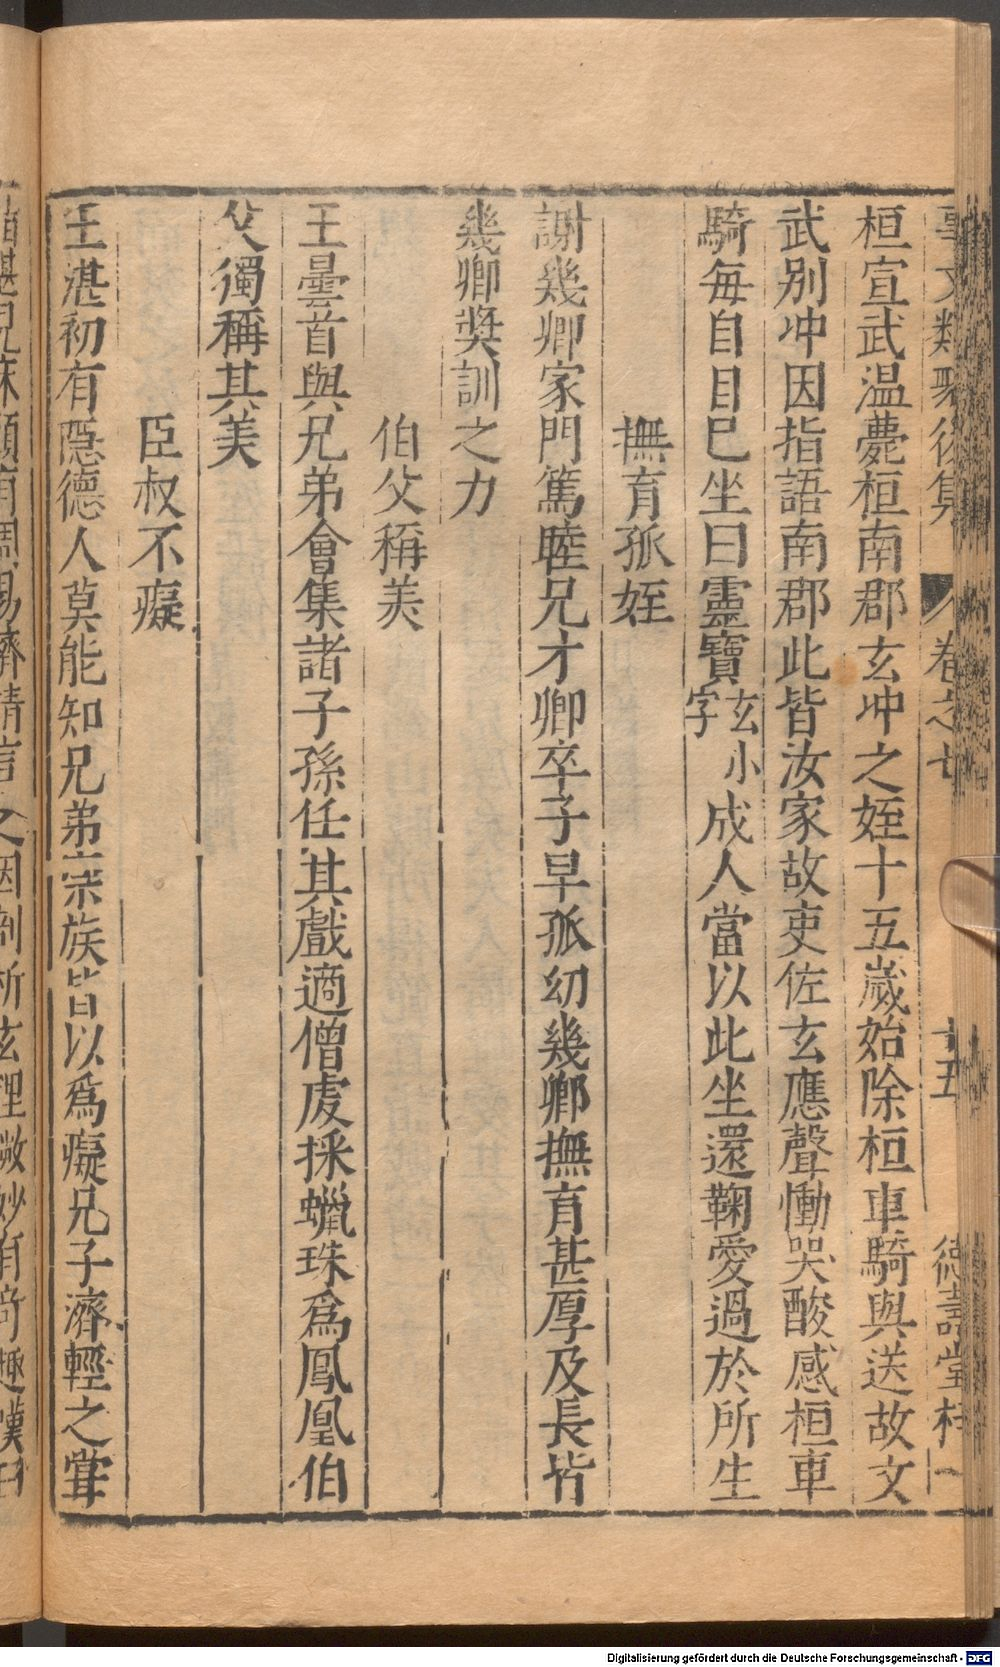 事文類聚後集 卷之七 十五 德壽堂梓
桓宣武溫薨桓南郡玄冲之姪十五歲始除桓車騎與送故文
武别冲因指語南郡此皆汝家故吏佐玄應聲慟哭酸感桓車
騎每自目巳坐曰靈寶玄小字成人當以此坐還鞠愛過於所生
撫育孤姪
謝幾卿家門篤睦兄才卿卒子早孤幼幾卿撫育甚厚及長皆
幾卿奬訓之力
伯父稱美
王曇首與兄弟會集諸子孫任其戲適僧虔採蠟珠爲鳳凰伯
父獨稱其美
臣叔不癡
王湛初有隱德人莫能知兄弟宗族皆以爲癡兄子濟輕之甞
Digitalisierung gefördert durch die Deutsche Forschungsgemeinschaft - DFG